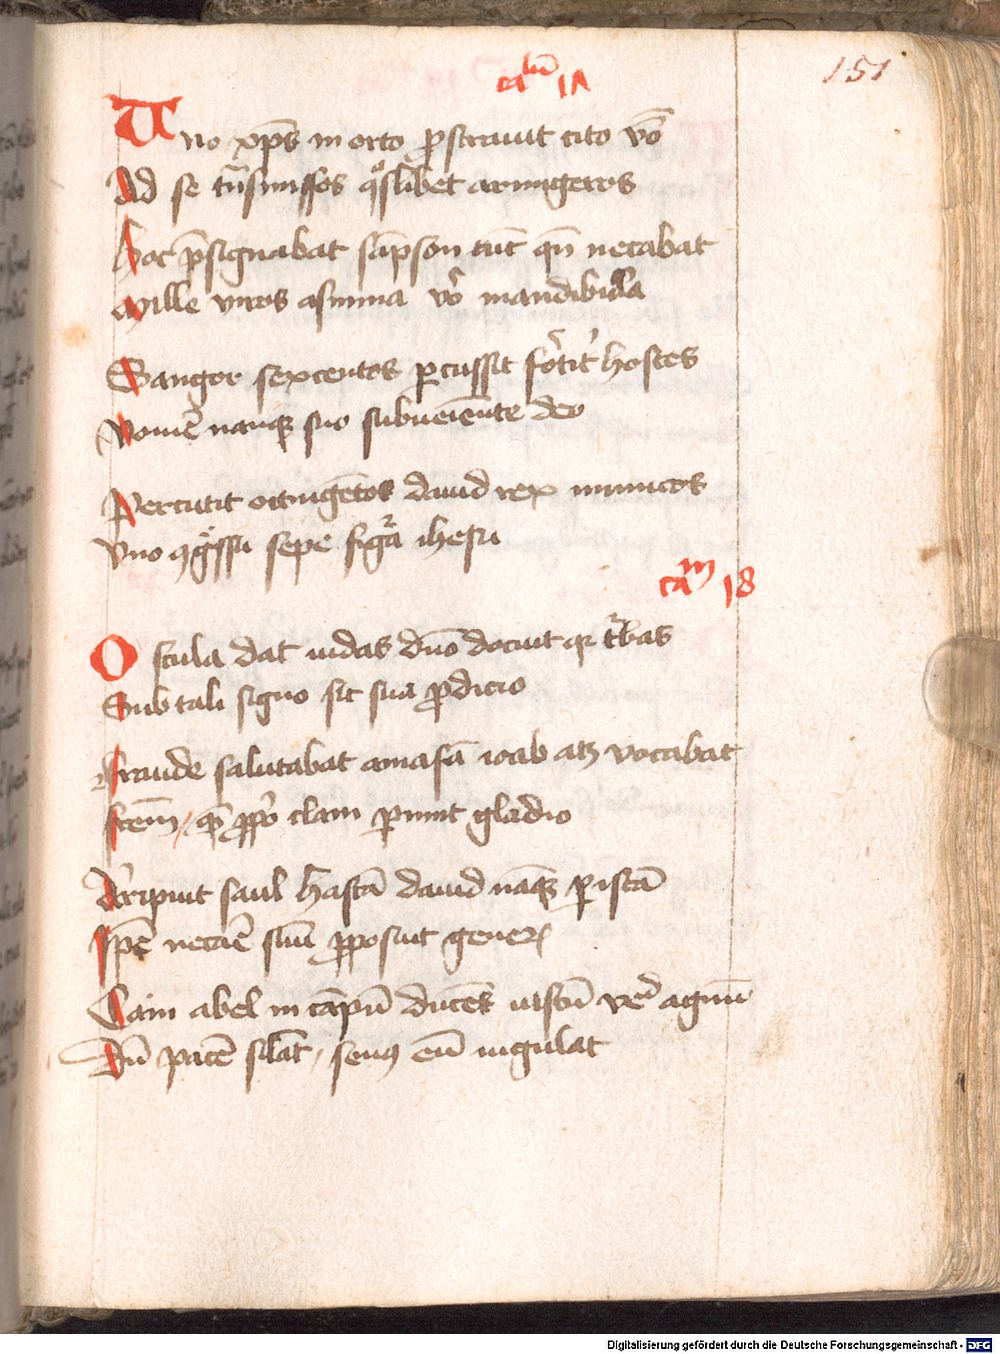 151
caᵐ 17
Uno xp̄s in orto p̄strauit cito v̄o
Ad se tͬnsmissos qͦslibet armigeros
Hoc p̄signabat sāpson tūc qn̄ necabat
Mille viros asinina v̄o mandibula
Sangor sexcentos ꝑcussit fort͛ hostes
Vomē̄ nanqꝫ suo subueiēnte deo
Percutit octingētos dauid rex inimicos
Vno ꝯgͥssu sepe figᷓa ihesu
caᵐ 18
Oscula dat iudas dn̄o docuit qꝫ t͛bas
Sub tali signo sit sua ꝓdicio
Fraude salutabat amasā ioab atqꝫ vocabat
frēm / qͣ ꝓpō clam ꝑimit gladio
Arripuit saul hastā dauid nāqꝫ ꝑ istā
Ip̄e necare suū ꝓposuit generꝫ
Caim abel in cāpū ducēs iustū vͤ agnū
Dū pacē silāt / seuꝰ eū iugulat
Digitalisierung gefördert durch die Deutsche Forschungsgemeinschaft - DFG